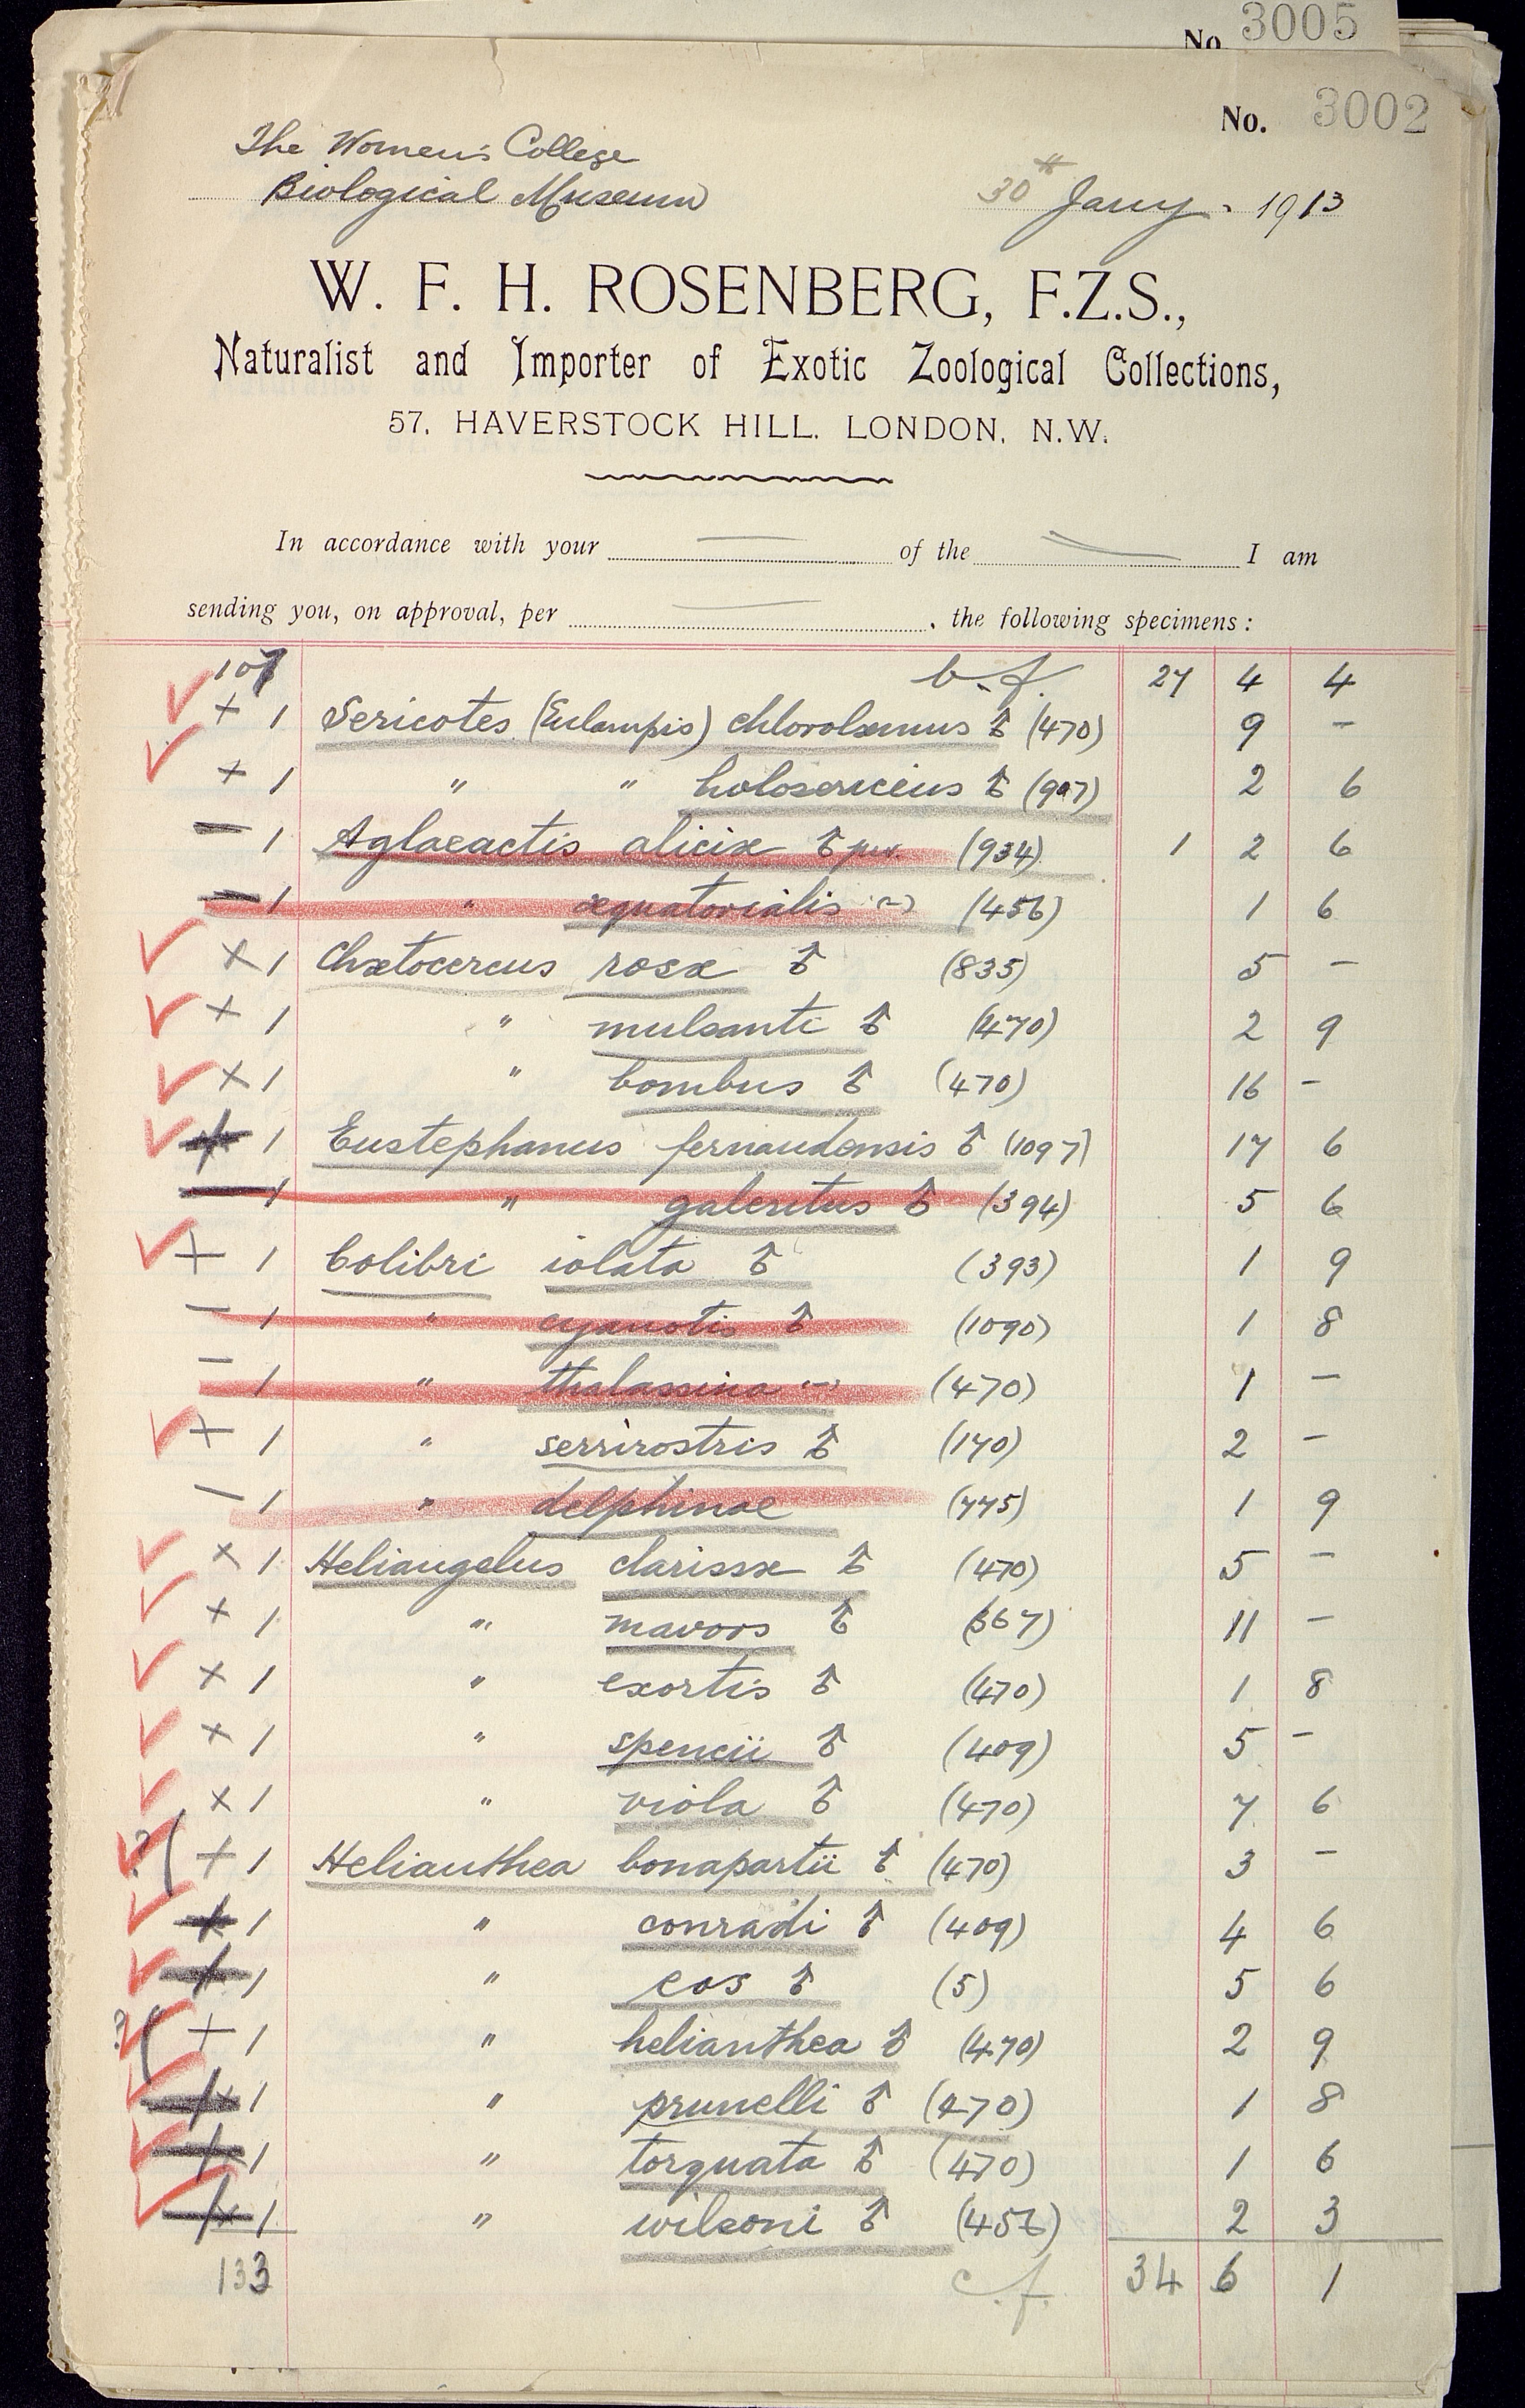 No. 3005
No. 3002
The Women's College
Biological Museum 30th Jany. 1913
W. F. H. ROSENBERG, F.Z.S.,
Naturalist and Importer of Exotic Zoological Collections,
57, HAVERSTOCK HILL, LONDON, N.W.
In accordance with your of the I am
sending you, on approval, per , the following specimens:
107 b.f. 27 4 4
+ 1 Sericotes (Eulampis) chlorolæmus ♂ (470) 9 –
+ 1 " " holosericeus ♂ (907) 2 6
– 1 Aglaeactis aliciæ ♂ juv. (934) 1 2 6
– 1 " æquatorialis (~) (456) 1 6
× 1 Chætocercus rosæ ♂ (835) 5 –
+ 1 " mulsanti ♂ (470) 2 9
× 1 " bombus ♂ (470) 16 –
+ 1 Eustephanus fernandensis ♂ (1097) 17 6
– 1 " galeritus ♂ (394) 5 6
+ 1 Colibri iolata ♂ (393) 1 9
– 1 " cyanotis ♂ (1090) 1 8
– 1 " thalassina (~) (470) 1 –
+ 1 " serrirostris ♂ (140) 2 –
– 1 " delphinae (775) 1 9
× 1 Heliangelus clarissæ ♂ (470) 5 –
+ 1 " mavors ♂ (367) 11 –
× 1 " exortis ♂ (470) 1 8
× 1 " spencii ♂ (409) 5 –
× 1 " viola ♂ (470) 7 6
? ( + 1 Helianthea bonapartii ♂ (470) 3 –
+ 1 " conradi ♂ (409) 4 6
+ 1 " eos ♂ (5) 5 6
? ( + 1 " helianthea ♂ (470) 2 9
× 1 " prunelli ♂ (470) 1 8
× 1 " torquata ♂ (470) 1 6
× 1 " wilsoni ♂ (456) 2 3
133 c.f. 34 6 1